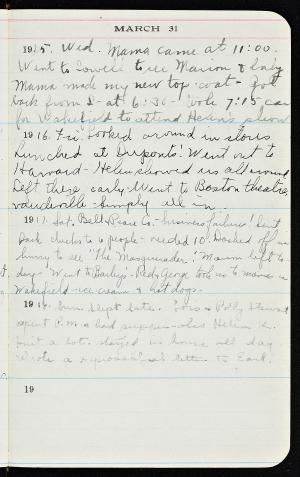 MARCH 31
1915. Wed. Mama came at 11:00.
Went to Lowell to see Marion & baby
Mama made my new top-coat - Got
back from L- at 6:30 - Took 7:15 car
for Wakefield to attend Helen's show
1916. Fri. Looked around in stores
Lunched at Duponts! Went out to
Harvard - Helen showed us all around
Left there early - Went to Boston theatre,
vaudeville - simply
1917. Sat. Ball Co. - business failure! Sent
back checks to people - needed 10. Dashed off in
hurry to see "The Masquerader." Marion left to-
day - Went to Bailey's. Red, George took us to movies in
Wakefield - ice cream & hot dogs.
1918. Sun. Slept late. & Polly Stewart
spent P.M. & had supper - also Helen K.
a lot. Stayed in house all day.
Wrote a letter to Earl.
19